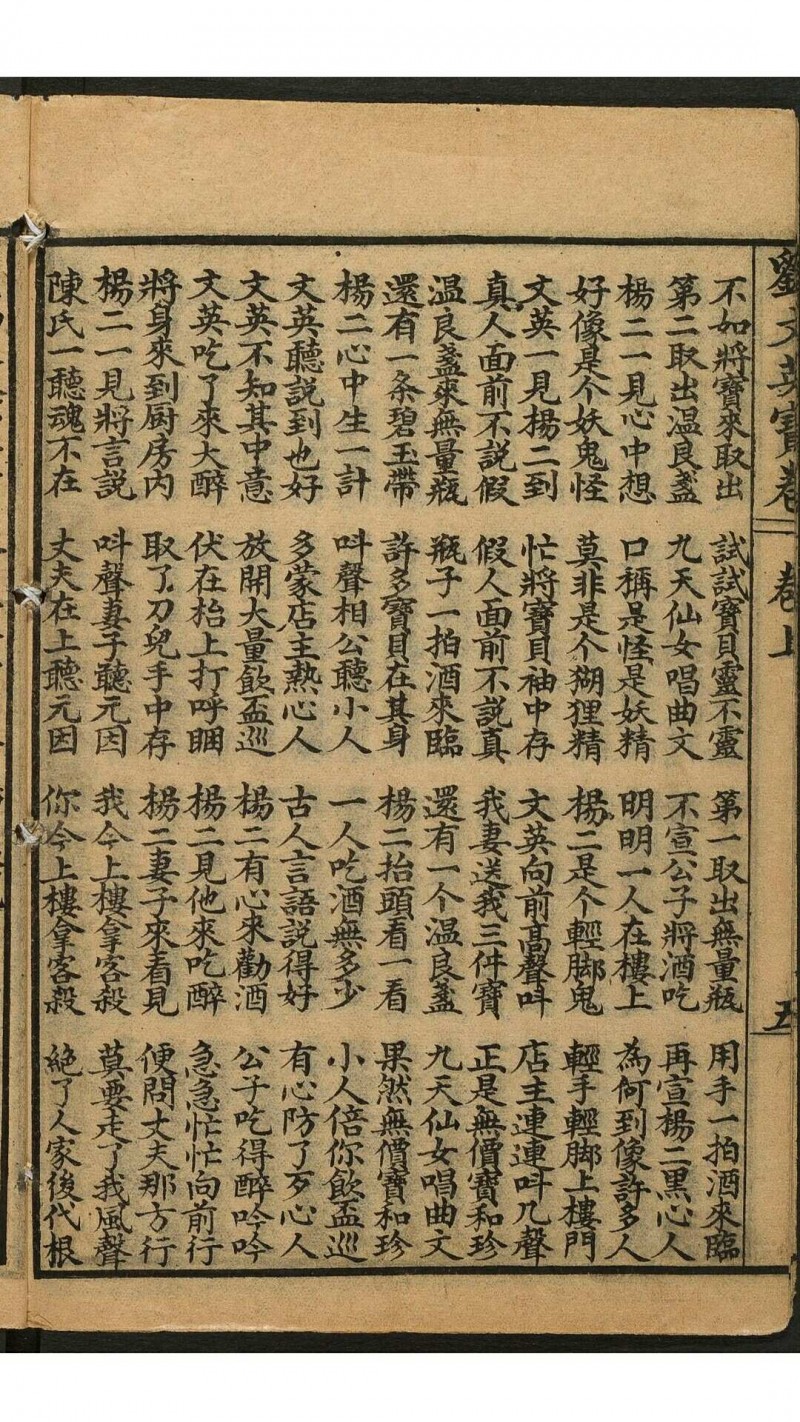 劉文英寶卷 卷上 五
不如將寶來取出 試試寶貝靈不靈 第一取出無量瓶 用手一拍酒來臨
第二取出温良盞 九天仙女唱曲文 不宣公子將酒吃 再宣楊二黒心人
楊二一見心中想 口稱是怪是妖精 明明一人在樓上 為何到像許多人
好像是个妖鬼怪 莫非是个猢狸精 楊二是个輕脚鬼 輕手輕脚上樓門
文英一見楊二到 忙將寶貝袖中存 文英向前髙聲呌 店主連連呌几聲
真人面前不説假 假人面前不説真 我妻送我三件寶 正是無價寶和珍
温良盞來無量瓶 瓶子一拍酒來臨 還有一个温良盞 九天仙女唱曲文
還有一条碧玉帶 許多寶貝在其身 楊二抬頭看一看 果然無價寶和珍
楊二心中生一計 呌聲相公聽小人 一人吃酒無多少 小人倍你飲盃巡
文英聽説到也好 多蒙店主熱心人 古人言語説得好 有心防了歹心人
文英不知其中意 放開大量飲盃巡 楊二有心來勸酒 公子吃得醉吟吟
文英吃了來大醉 伏在枱上打呼睏 楊二見他來吃醉 急急忙忙向前行
將身來到厨房内 取了刀兒手中存 楊二妻子來看見 便問丈夫那方行
楊二一見將言説 呌聲妻子聽元因 我今上樓拿客殺 莫要走了我風聲
陳氏一聽魂不在 丈夫在上聽元因 你今上樓拿客殺 絶了人家後代根